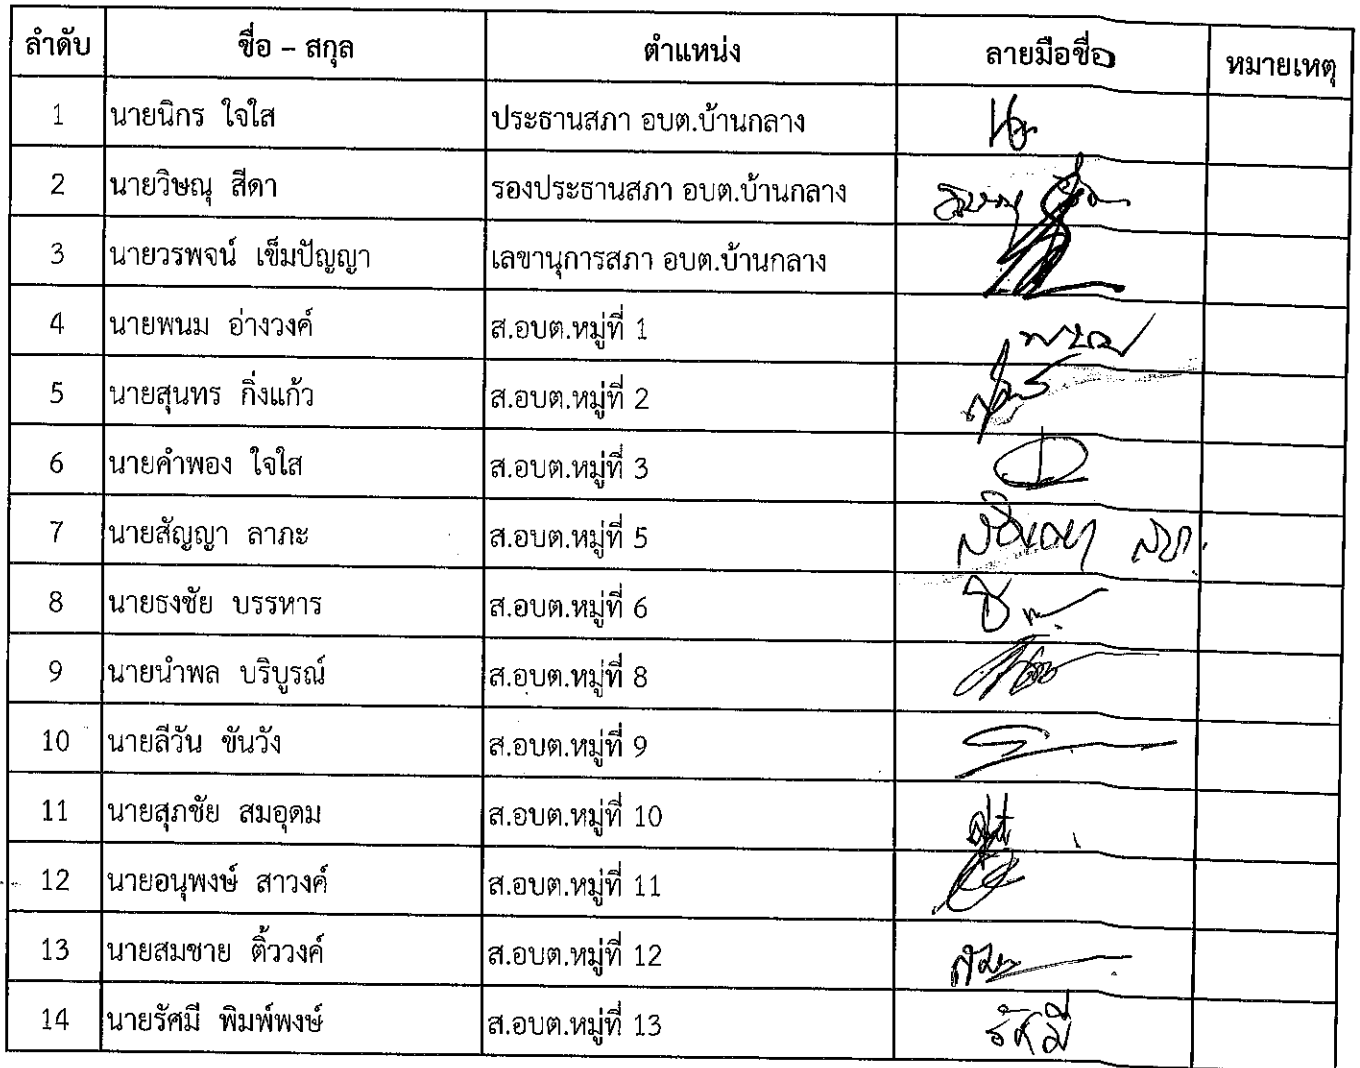 ลำดับ ชื่อ – สกุล ตำแหน่ง ลายมือชื่อ หมายเหตุ
1 นายนิกร ใจใส ประธานสภา อบต.บ้านกลาง
2 นายวิษณุ สีดา รองประธานสภา อบต.บ้านกลาง
3 นายวรพจน์ เข็มปัญญา เลขานุการสภา อบต.บ้านกลาง
4 นายพนม อ่างวงค์ ส.อบต.หมู่ที่ 1
5 นายสุนทร กิ่งแก้ว ส.อบต.หมู่ที่ 2
6 นายคำพอง ใจใส ส.อบต.หมู่ที่ 3
7 นายสัญญา ลาภะ ส.อบต.หมู่ที่ 5
8 นายธงชัย บรรหาร ส.อบต.หมู่ที่ 6
9 นายนำพล บริบูรณ์ ส.อบต.หมู่ที่ 8
10 นายลีวัน ขันวัง ส.อบต.หมู่ที่ 9
11 นายสุภชัย สมอุดม ส.อบต.หมู่ที่ 10
12 นายอนุพงษ์ สาวงค์ ส.อบต.หมู่ที่ 11
13 นายสมชาย ติ้ววงค์ ส.อบต.หมู่ที่ 12
14 นายรัศมี พิมพ์พงษ์ ส.อบต.หมู่ที่ 13 รัศมี